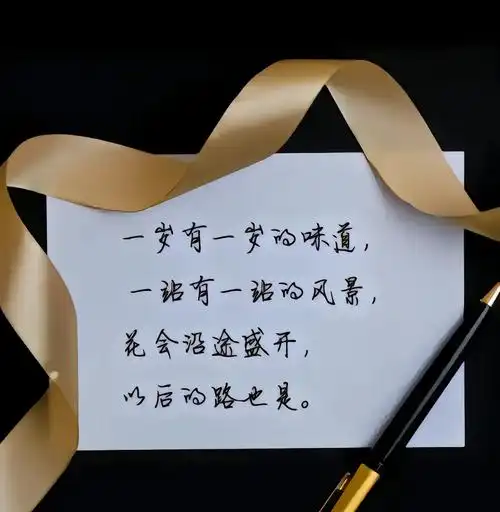 一岁有一岁的味道，
一站有一站的风景，
花会沿途盛开，
以后的路也是。